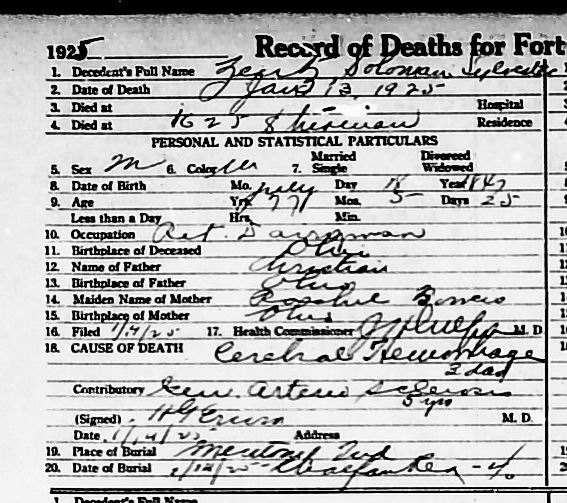 1925 Record of Deaths for Fort
1. Decedent's Full Name Solomon Sylvester
2. Date of Death Jan 13, 1925
3. Died at Hospital
4. Died at 1625 Sherman Residence
PERSONAL AND STATISTICAL PARTICULARS
5. Sex M 6. Color W 7. Married Single Divorced Widowed
8. Date of Birth Mo. July Day 18 Year 1847
9. Age Yrs. 77 Mos. 5 Days 25
Less than a Day Hrs. Min.
10. Occupation Ret. Dairyman
11. Birthplace of Deceased Ohio
12. Name of Father Christian
13. Birthplace of Father Ohio
14. Maiden Name of Mother
15. Birthplace of Mother Ohio
16. Filed 1/14/25 17. Health Commissioner M. D.
18. CAUSE OF DEATH Cerebral Hemorrhage
3 days
Contributory Gen. Arterio Sclerosis
5 yrs
(Signed) M. D.
Date 1/14/25 Address
19. Place of Burial Mentone Ind
20. Date of Burial
1. Decedent's Full Name